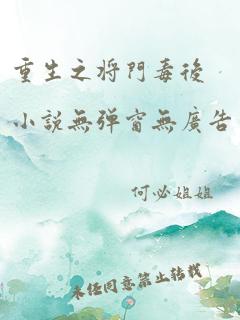 重生之将門毒後
小說無彈窗無廣告
何必姐姐
未经同意禁止转载